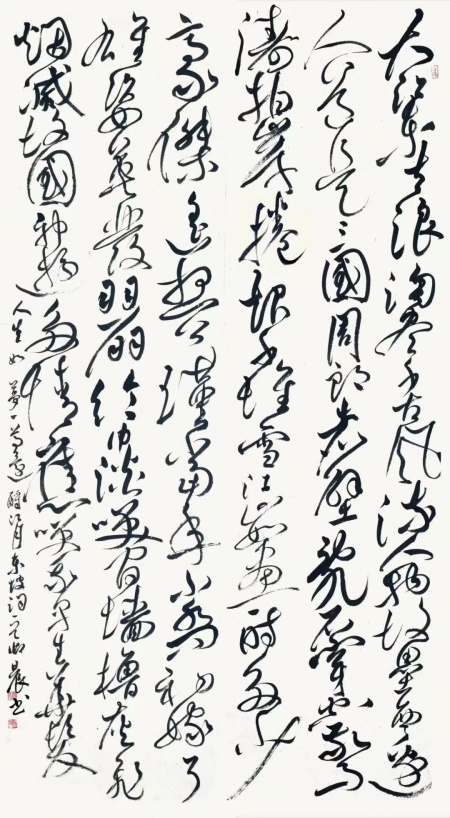 大江东去浪淘尽千古风流人物故垒西边
人道是三國周郎赤壁乱石穿空惊
涛拍岸捲起千堆雪江山如画一时多少
豪傑遥想公瑾当年小乔初嫁了
雄姿英发羽扇纶巾谈笑间墙橹灰飞
烟滅故國神游多情应笑我早生华髮
人生如夢一尊还酹江月东坡词 晨书